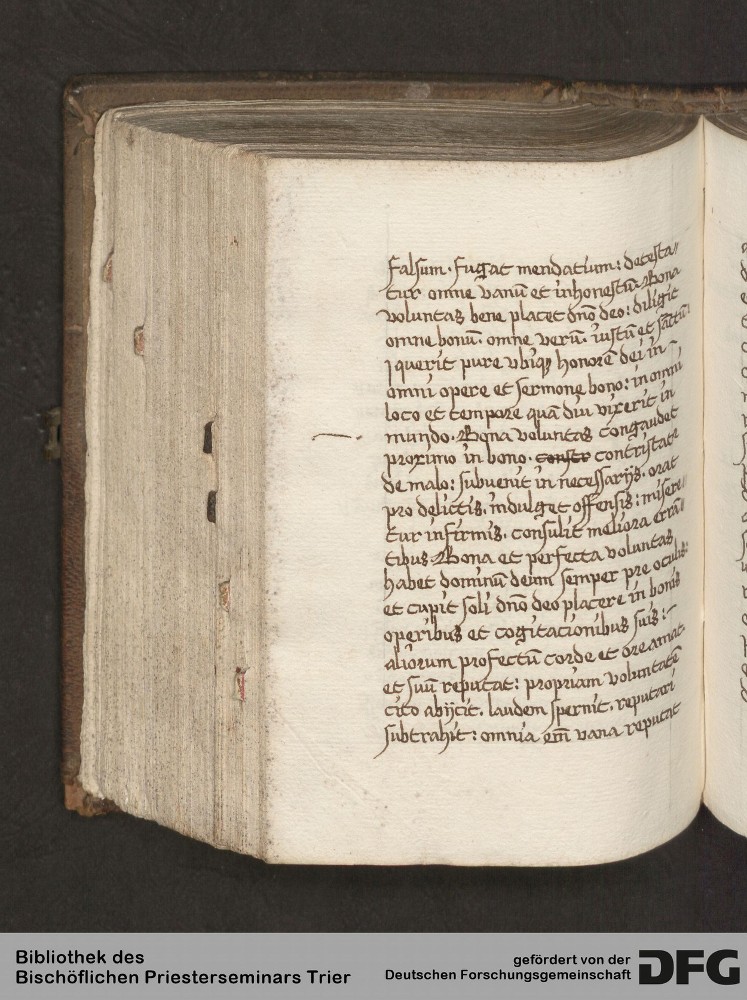 falsum. fugat mendatium: detesta〃
tur omne vanū et inhonestū. Bona
voluntas bene placet dño deo: diligit
omne bonū. omne verū. iustū et sāctū:
⁊ querit pure vbiqȝ honorē dei in
omni opere et sermone bono: in omni
loco et tempore quā diu vixerit in
mundo. Bona voluntas congaudet
proximo in bono. constr contristatᷣ
de malo: subuenit in necessarijs. orat
pro delictis. indulget offensis: misere〃
tur infirmis. consulit meliora errā〃
tibus. Bona et perfecta voluntas
habet dominū deum semper pre oculis:
et cupit soli dño deo placere in bonis
operibus et cogitacionibus suis:
aliorum profectū corde et ore amat
et suū reputat: propriam voluntatē
cito abijcit. laudem spernit. reputari
subtrahit: omnia em̄ vana reputat
Bibliothek des
Bischöflichen Priesterseminars Trier
gefördert von der
Deutschen Forschungsgemeinschaft
DFG